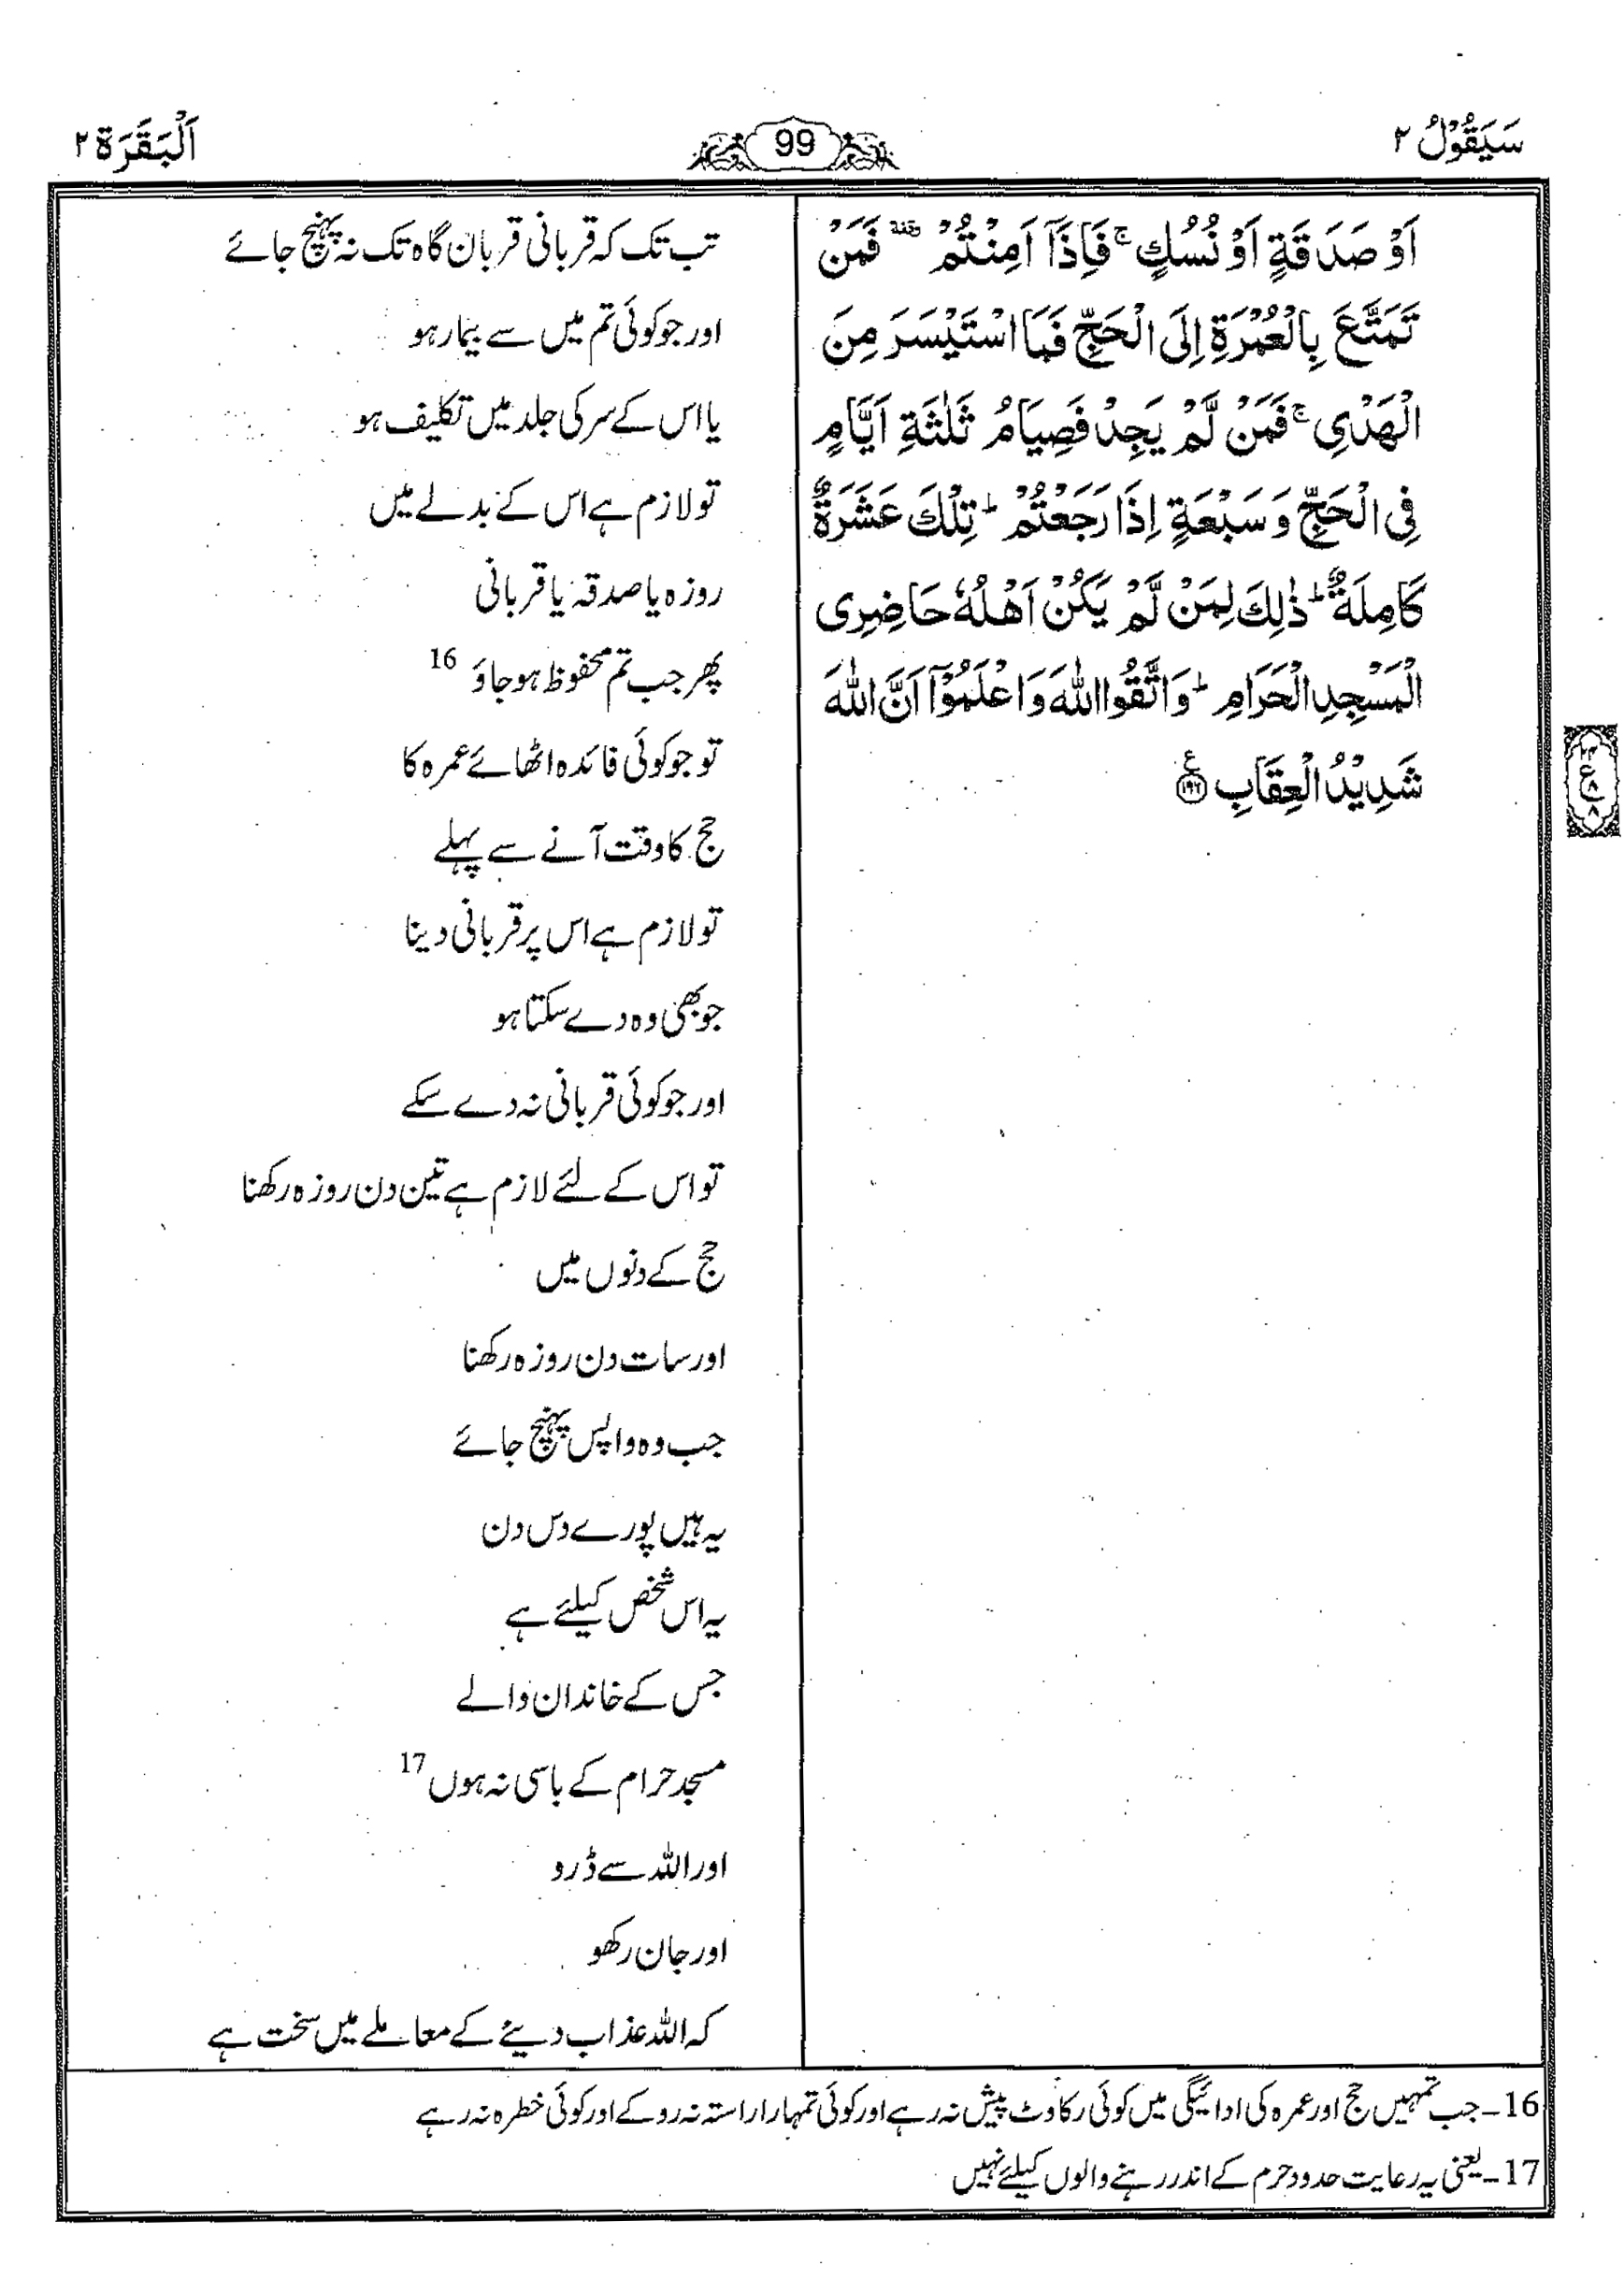 سَيَقُوْلُ ٢
99
اَلْبَقَرَة ٢
اَوْ صَدَقَةٍ اَوْ نُسُكٍ ۚ فَاِذَاۤ اَمِنْتُمْ ۥ فَمَنْ
تَمَتَّعَ بِالْعُمْرَةِ اِلَى الْحَجِّ فَمَا اسْتَيْسَرَ مِنَ
الْهَدْيِ ۚ فَمَنْ لَّمْ يَجِدْ فَصِيَامُ ثَلٰثَةِ اَيَّامٍ
فِى الْحَجِّ وَسَبْعَةٍ اِذَا رَجَعْتُمْ ؕ تِلْكَ عَشَرَةٌ
كَامِلَةٌ ؕ ذٰلِكَ لِمَنْ لَّمْ يَكُنْ اَهْلُهٗ حَاضِرِى
الْمَسْجِدِ الْحَرَامِ ؕ وَاتَّقُوا اللّٰهَ وَاعْلَمُوْۤا اَنَّ اللّٰهَ
شَدِيْدُ الْعِقَابِ ࣖ ١٩٦
٢٤
ع
٨
٨
تب تک کہ قربانی قربان گاہ تک نہ پہنچ جائے
اور جو کوئی تم میں سے بیمار ہو
یا اس کے سر کی جلد میں تکلیف ہو
تو لازم ہے اس کے بدلے میں
روزہ یا صدقہ یا قربانی
پھر جب تم محفوظ ہو جاؤ 16
تو جو کوئی فائدہ اٹھائے عمرہ کا
حج کا وقت آنے سے پہلے
تو لازم ہے اس پر قربانی دینا
جو بھی وہ دے سکتا ہو
اور جو کوئی قربانی نہ دے سکے
تو اس کے لئے لازم ہے تین دن روزہ رکھنا
حج کے دنوں میں
اور سات دن روزہ رکھنا
جب وہ واپس پہنچ جائے
یہ ہیں پورے دس دن
یہ اس شخص کیلئے ہے
جس کے خاندان والے
مسجد حرام کے باسی نہ ہوں 17
اور اللہ سے ڈرو
اور جان رکھو
کہ اللہ عذاب دینے کے معاملے میں سخت ہے
16۔ جب تمہیں حج اور عمرہ کی ادائیگی میں کوئی رکاوٹ پیش نہ رہے اور کوئی تمہارا راستہ نہ روکے اور کوئی خطرہ نہ رہے
17۔ یعنی یہ رعایت حدود حرم کے اندر رہنے والوں کیلئے نہیں